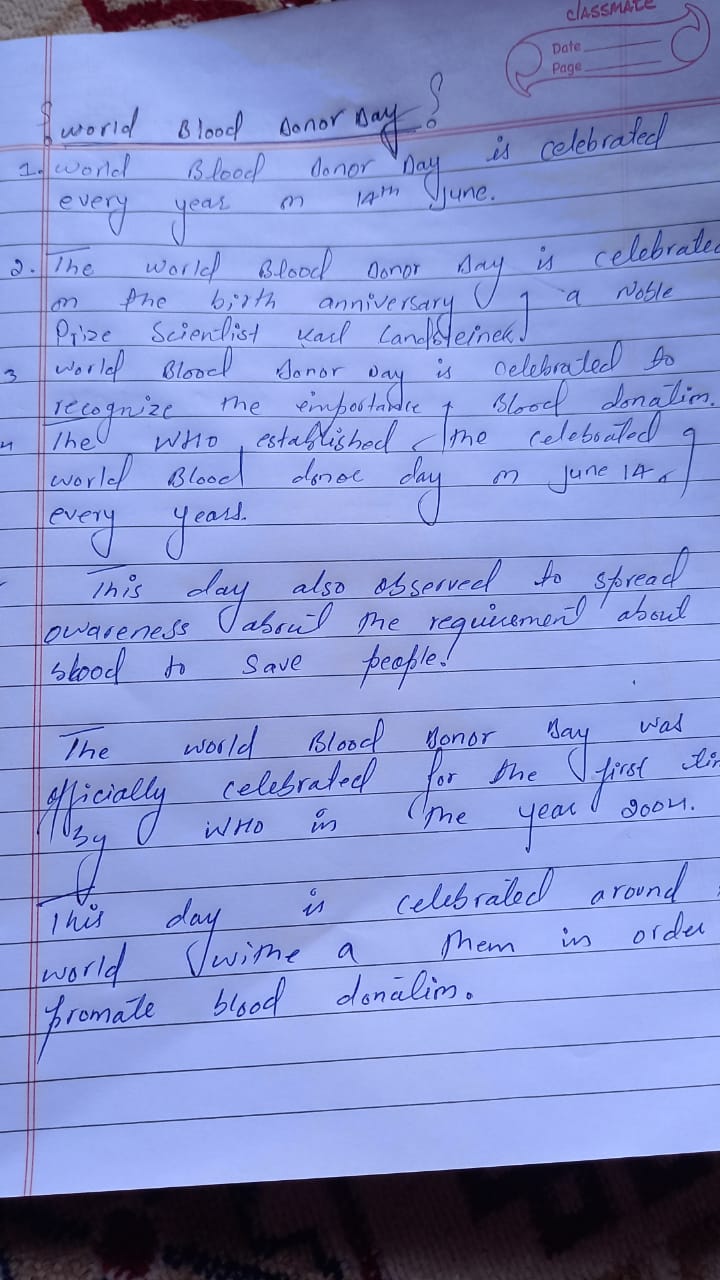 CLASSMATE
Date
Page
World Blood Donor Day
1. World Blood donor Day is celebrated
every year on 14th June.
2. The World Blood Donor Day is celebrated
on the birth anniversary of a Noble
Prize Scientist Karl Landsteinek.
3 World Blood Donor Day is celebrated to
recognize the eimportance of Blood donation.
4 The WHO established the celeboated of
world Blood donoe day on June 14
every years.
This day also observed to spread
awareness about the requirement about
blood to save people.
The world Blood Donor Day was
officially celebrated for the first
By WHO in the year 2004.
This day is celebrated around
world withe a them in order
promate blood donation.